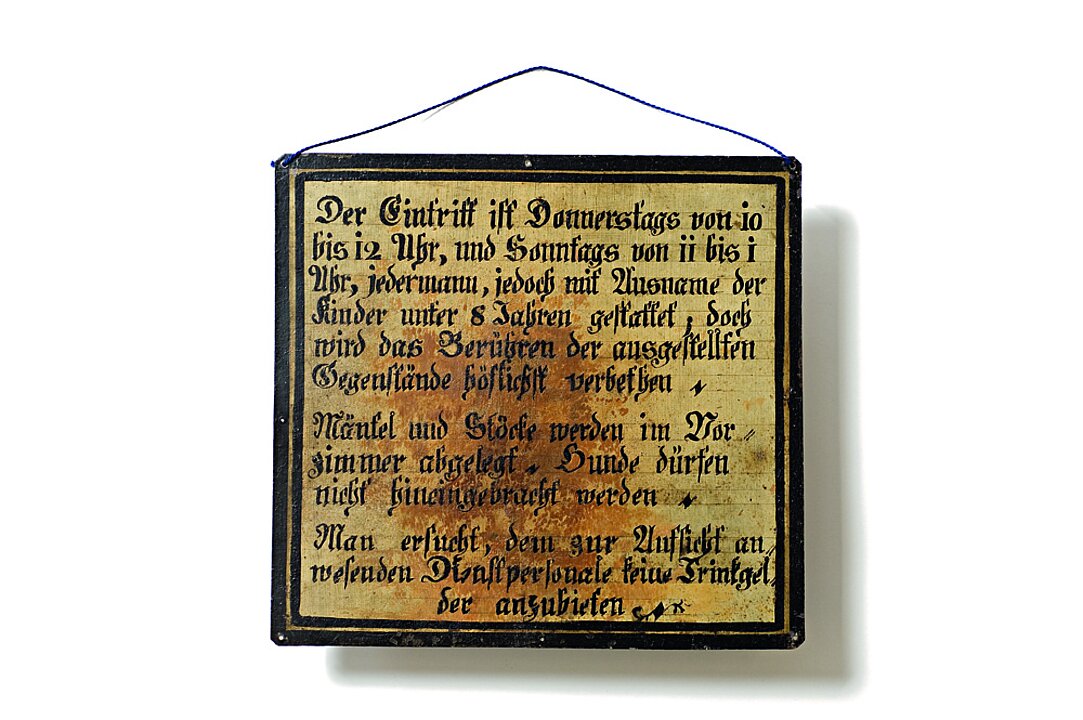 Der Eintritt ist Donnerstags von 10
bis 12 Uhr, und Sonntags von 11 bis 1
Uhr, jedermann, jedoch mit Ausname der
Kinder unter 8 Jahren gestattet, doch
wird das Berühren der ausgestellten
Gegenstände höflichst verbethen.
Mäntel und Stöcke werden im Vor-
zimmer abgelegt. Hunde dürfen
nicht hineingebracht werden.
Man ersucht, dem zur Aufsicht an-
wesenden Dienstpersonale keine Trinkgel-
der anzubieten.